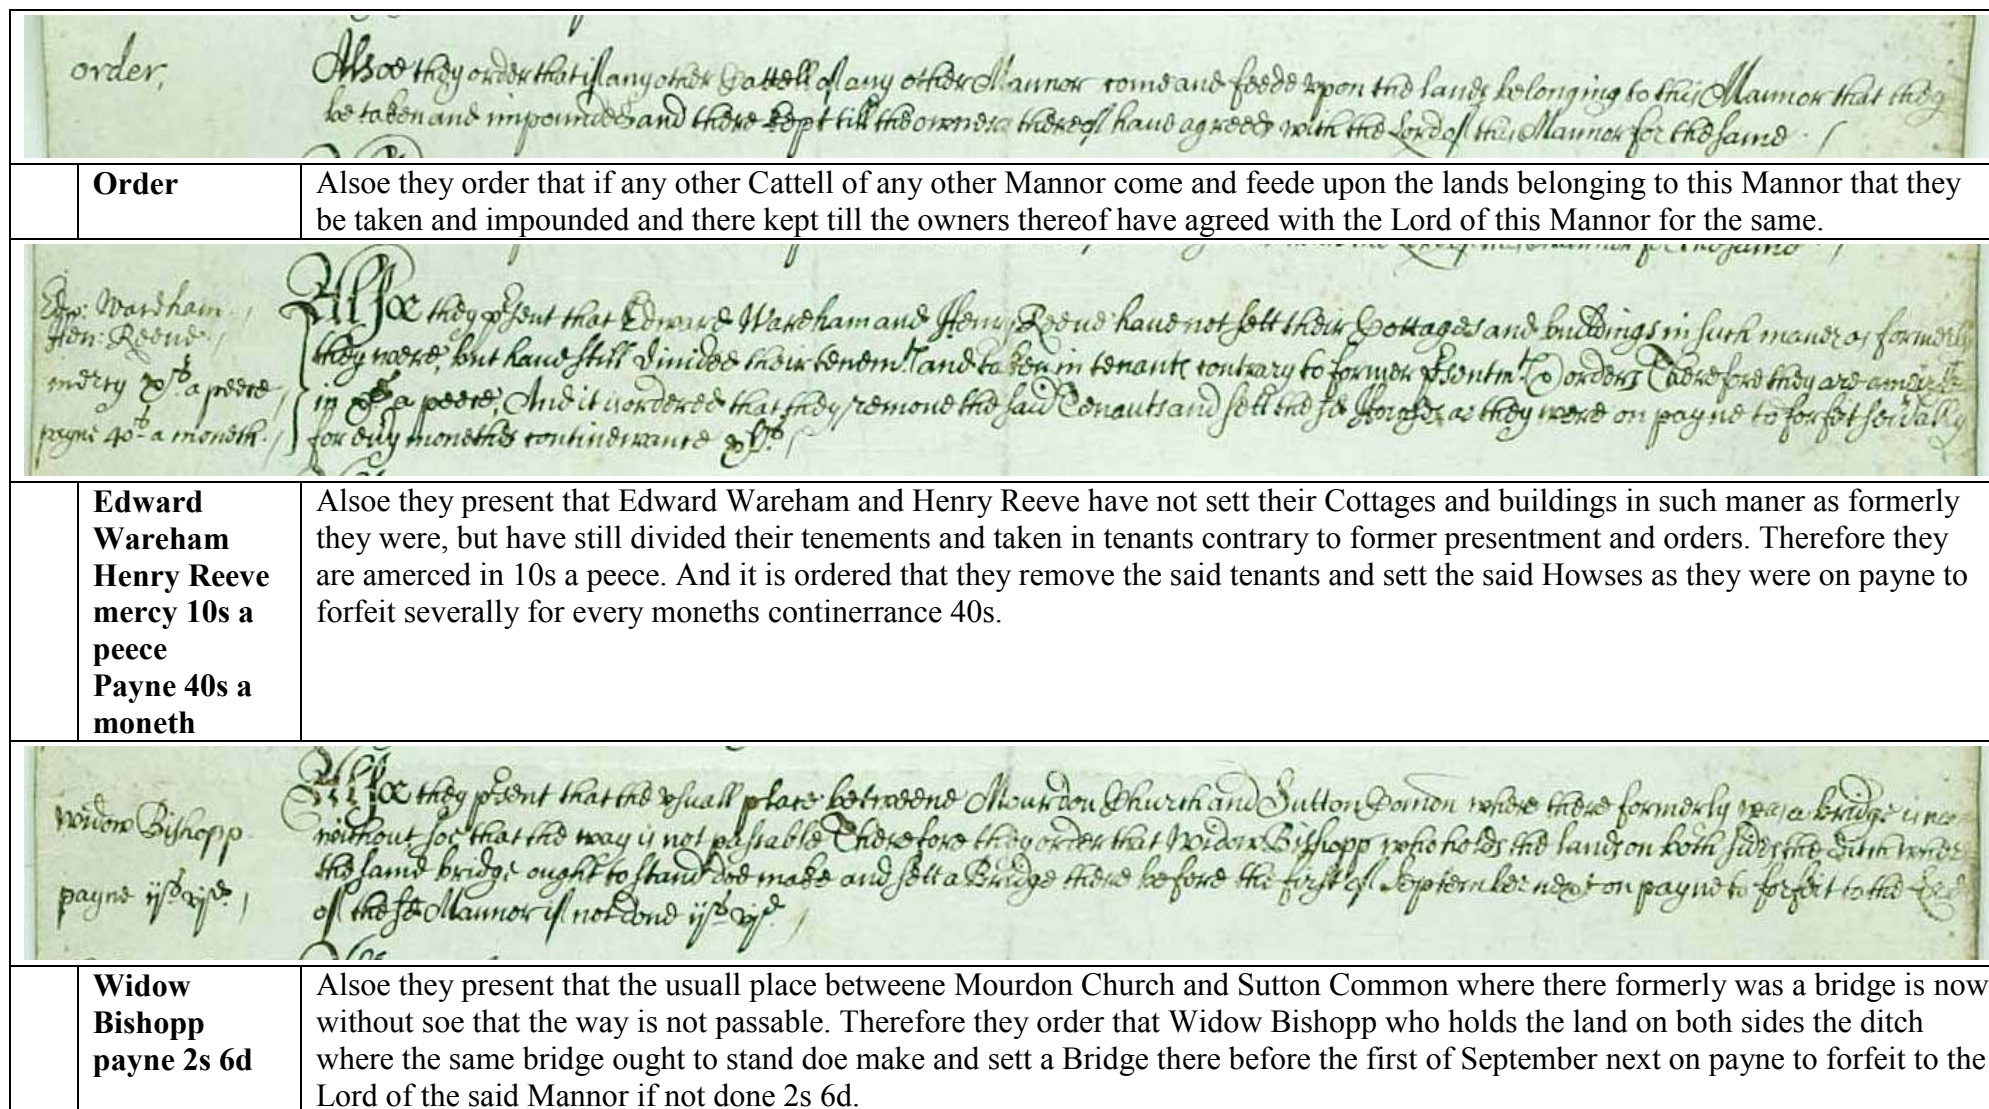 order,
Alsoe they order that if any other Cattell of any other Mannor come and feede upon the lands belonging to this Mannor that they
be taken and impounded and there kept till the owners thereof have agreed with the Lord of this Mannor for the same
Order
Alsoe they order that if any other Cattell of any other Mannor come and feede upon the lands belonging to this Mannor that they
be taken and impounded and there kept till the owners thereof have agreed with the Lord of this Mannor for the same.
Edw: Wareham
Hen: Reeve
mercy xs a peece
payne 40s a moneth
Alsoe they pſent that Edward Wareham and Henry Reeve have not sett their Cottages and buildings in such maner as formerly
they were, but have still divided their tenemts and taken in tenants contrary to former pſentmt & orders Therefore they are
in xs a peece, And it is ordered that they remove the said Tenants and sett the sd Howses as they were on payne to forfeit
for evy moneths
Edward
Wareham
Henry Reeve
mercy 10s a
peece
Payne 40s a
moneth
Alsoe they present that Edward Wareham and Henry Reeve have not sett their Cottages and buildings in such maner as formerly
they were, but have still divided their tenements and taken in tenants contrary to former presentment and orders. Therefore they
are amerced in 10s a peece. And it is ordered that they remove the said tenants and sett the said Howses as they were on payne to
forfeit severally for every moneths continerrance 40s.
Widow Bishopp
payne ijs vjd
Alsoe they pſent that the usuall place betweene Mourdon Church and Sutton Comon where there formerly was a bridge is
without soe that the way is not passable Therefore they order that Widow Bishopp who holds the lands on both sides the ditch where
the same bridge ought to stand doe make and sett a Bridge there before the first of September next on payne to forfeit to the Lord
of the sd Mannor if not done ijs vjd
Widow
Bishopp
payne 2s 6d
Alsoe they present that the usuall place betweene Mourdon Church and Sutton Common where there formerly was a bridge is now
without soe that the way is not passable. Therefore they order that Widow Bishopp who holds the land on both sides the ditch
where the same bridge ought to stand doe make and sett a Bridge there before the first of September next on payne to forfeit to the
Lord of the said Mannor if not done 2s 6d.